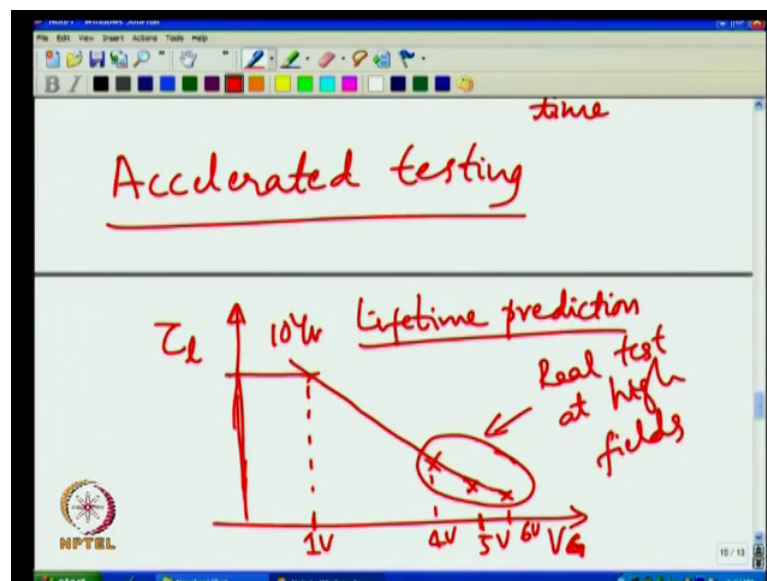 File Edit View Insert Actions Tools Help
B I
time
Accelerated testing
Lifetime prediction
τl
10Yr
Real test
at high
fields
1V 4V 5V 6V VG
NPTEL
10 / 13